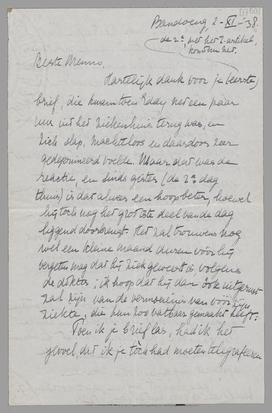 Bandoeng, 2-XI-'38.
de 2e met het artikel,
Beste Menno,
Hartelijk dank voor je (eerste)
brief, die kwam toen Eddy net een paar
uur uit het ziekenhuis terug was, en
zich slap, machteloos en daardoor zeer
gedeprimeerd voelde. Maar dat was de
reactie, en sinds gister (de 2e dag
thuis) is dat alweer een hoop beter, hoewel
hij toch nog het grootste deel van de dag
liggend doorbrengt. Het zal trouwens nog
wel een kleine maand duren voor hij
vergeten mag dat hij ziek geweest is, volgens
de dokter; ik hoop dat hij dan ook uitgerust
zal zijn van de vermoeienis van vóór zijn
ziekte, die hem zoo vatbaar gemaakt heeft.
Toen ik je brief las, had ik het
gevoel dat ik je toch had moeten telegrafeeren